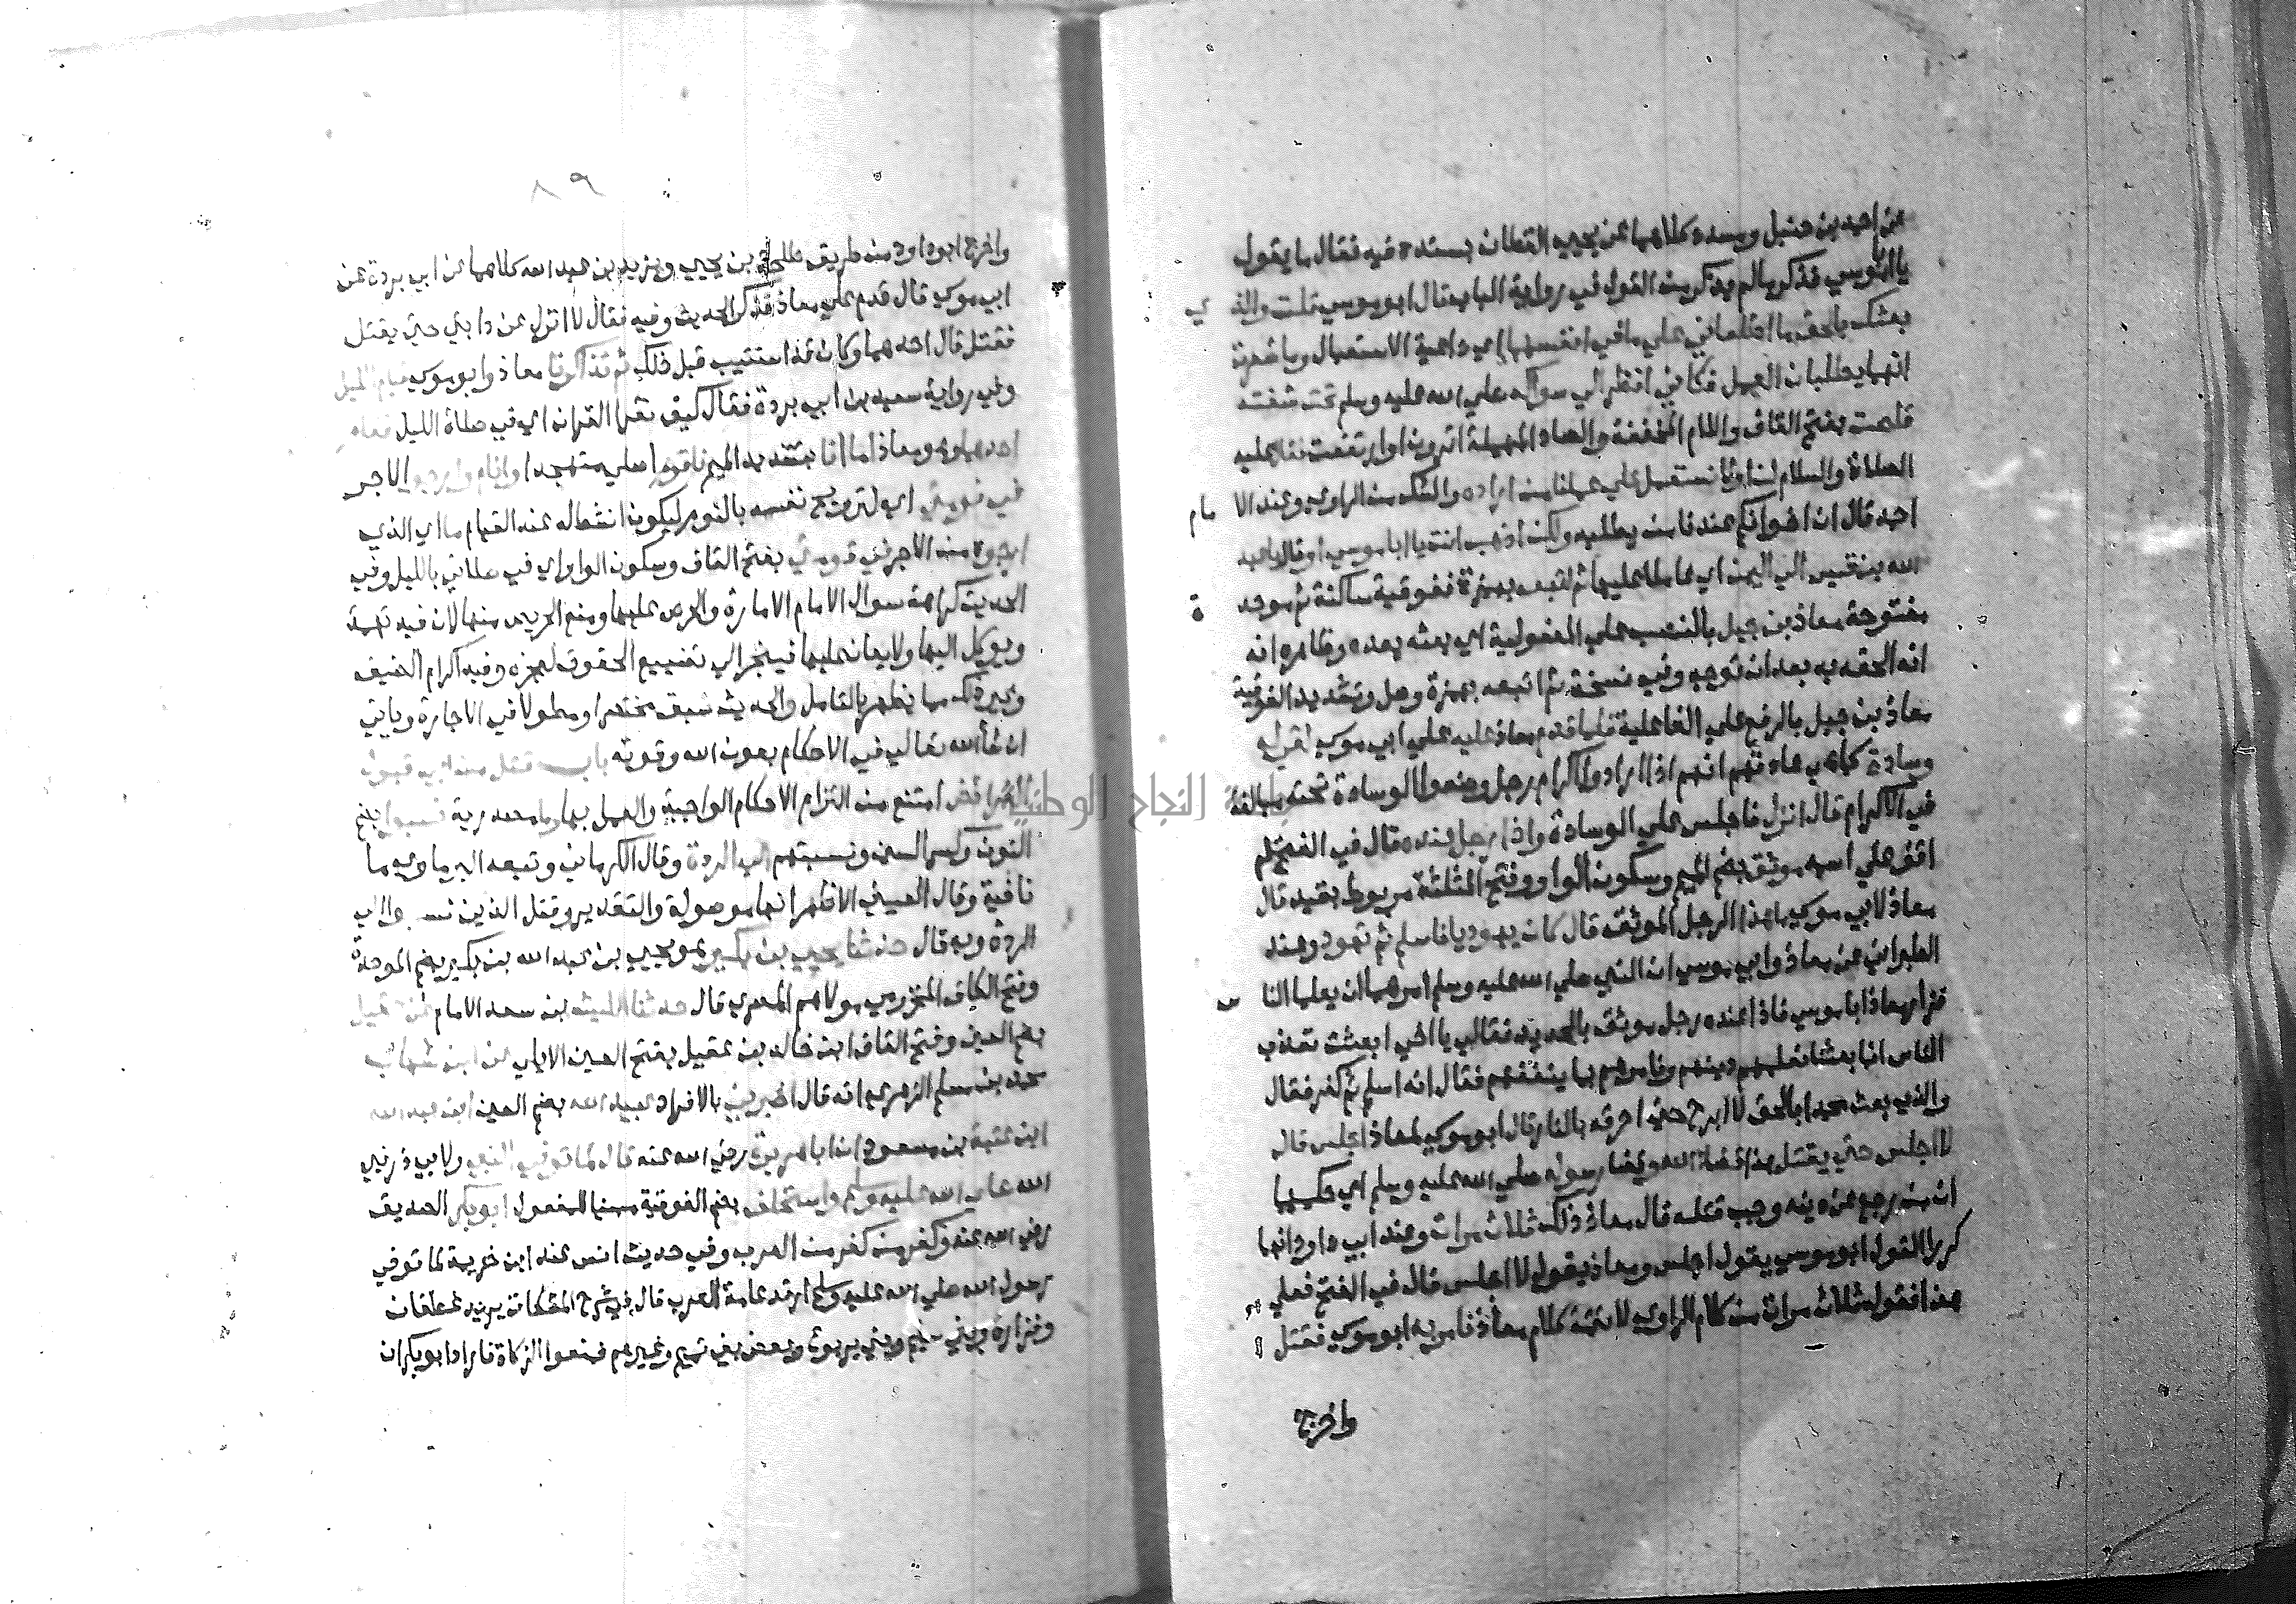 عن احمد بن حنبل ومسدد كلاهما عن يحيي القطان بسنده فيه فقال ما يقول
يا ابا موسي فذكر مالم يذكر من القول في رواية الباب قال ابو موسي قلت والذي
بعثك بالحق ما اطلعاني علي ما في انفسهما اي داعية الاستعمال وما شعرت
انهما يطلبان العمل فكاني انظر الي سواكه صلي الله عليه وسلم تحت شفته
قلصت بفتح القاف واللام المخففة والصاد المهملة انزوت او ارتفعت فقال عليه
الصلاة والسلام لن او لا نستعمل علي عملنا من اراده والشك من الراوي وعند الامام
احمد قال ان اخوانكم عندنا من يطلبه ولكن اذهب انت يا ابا موسي او قال يا عبد
الله بن قيس الي اليمن اي عاملا عليها ثم اتبعه بهمزة ففوقية ساكنة ثم موحدة
مفتوحة معاذ بن جبل بالنصب علي المفعولية اي بعثه بعده وظاهره انه
انه الحقه به بعد ان توجه وفي نسخة ثم اتبعه بهمزة وصل وتشديد الفوقية
معاذ بن جبل بالرفع علي الفاعلية فلما قدم معاذ عليه علي ابي موسي القي له
وسادة كما هي عادتهم انهم اذا ارادوا اكرام رجل وضعوا الوسادة تحته مبالغة
في الاكرام قال انزل فاجلس علي الوسادة واذا رجل عنده قال في الفتح لم
اقف علي اسمه موثق بضم الميم وسكون الواو وفتح المثلثة مربوط بقيد قال
معاذ لابي موسي ما هذا الرجل الموثق قال كان يهوديا فاسلم ثم تهود وعند
الطبراني عن معاذ وابي موسي ان النبي صلي الله عليه وسلم امرهما ان يعلما الناس
فزار معاذ ابا موسي فاذا عنده رجل موثق بالحديد فقال يا اخي ابعثت تعذب
الناس انما بعثنا نعلمهم دينهم ونامرهم بما ينفعهم فقال انه اسلم ثم كفر فقال
والذي بعث محمدا بالحق لا ابرح حتي احرقه بالنار قال ابو موسي لمعاذ اجلس قال
لا اجلس حتي يقتل هذا قضاء الله وقضا رسوله صلي الله عليه وسلم اي حكمهما
ان من رجع عن دينه وجب قتله قال معاذ ذلك ثلاث مرات وعند ابي داود انهما
كررا القول ابو موسي يقول اجلس ومعاذ يقول لا اجلس قال في الفتح فعلي
هذا فقوله ثلاث مرات من كلام الراوي لا تتمة كلام معاذ فامر به ابو موسي فقتل
واخرج
٨٩
واخرج ابو داود من طريق طلحة بن يحيي ويزيد بن عبد الله كلاهما عن ابي بردة عن
ابي موسي قال قدم علي معاذ فذكر الحديث وفيه فقال لا انزل عن دابتي حتي يقتل
فقتل قال احدهما وكان قد استتيب قبل ذلك ثم تذاكرنا معاذ وابو موسي قيام الليل
وفي رواية سعيد بن ابي بردة فقال كيف تقرا القران اي في صلاة الليل فقال
احدهما وهو معاذ اما انا بتشديد الميم فاقوم اصلي متهجدا وانام وارجو الاجر
في نومتي اي لترويح نفسه بالنوم ليكون انشط له عند القيام ما اي الذي
ارجوه من الاجر في قومتي بفتح القاف وسكون الواو اي في صلاتي بالليل وفي
الحديث كراهة سوال الامام الامارة والحرص عليها ومنع الحريص منها لان فيه تهمة
ويوكل اليها ولا يعان عليها فينجر الي تضييع الحقوق لعجزه وفيه اكرام الضيف
وغير ذلك مما يظهر بالتامل والحديث سبق مختصرا ومطولا في الاجارة وياتي
ان شاء الله تعالي في الاحكام بعون الله وقوته باب قتل من ابي قبول
الفرائض امتنع من التزام الاحكام الواجبة والعمل بها وما مصدرية نسبوا بضم
النون وكسر السين ونسبتهم الي الردة وقال الكرماني وتبعه البرماوي ما
نافية وقال العيني الاظهر انها موصولة والتقدير وقتل الذين نسبوا الي
الردة وبه قال حدثنا يحيي بن بكير هو يحيي بن عبد الله بن بكير بضم الموحدة
وفتح الكاف المخزومي مولاهم المصري قال حدثنا الليث بن سعد الامام عن عقيل
بضم العين وفتح القاف ابن خالد بن عقيل بفتح العين الايلي عن ابن شهاب
محمد بن مسلم الزهري انه قال اخبرني بالافراد عبيد الله بضم العين ابن عبد الله
ابن عتبة بن مسعود ان ابا هريرة رضي الله عنه قال لما توفي النبي ولابي ذر نبي
الله صلي الله عليه وسلم واستخلف بضم الفوقية مبنيا للمفعول ابو بكر الصديق
رضي الله عنه وكفر من كفر من العرب وفي حديث انس عند ابن خزيمة لما توفي
رسول الله صلي الله عليه وسلم ارتد عامة العرب قال في شرح المشكاة يريد غطفان
وفزارة وبني سليم وبني يربوع وبعض بني تميم وغيرهم فمنعوا الزكاة فاراد ابو بكر ان
جامعة النجاح الوطنية